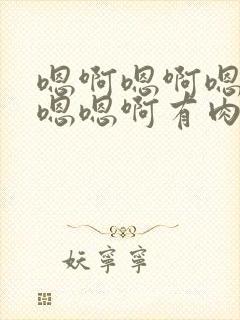 嗯啊嗯啊嗯
嗯嗯啊有肉
妖寧寧